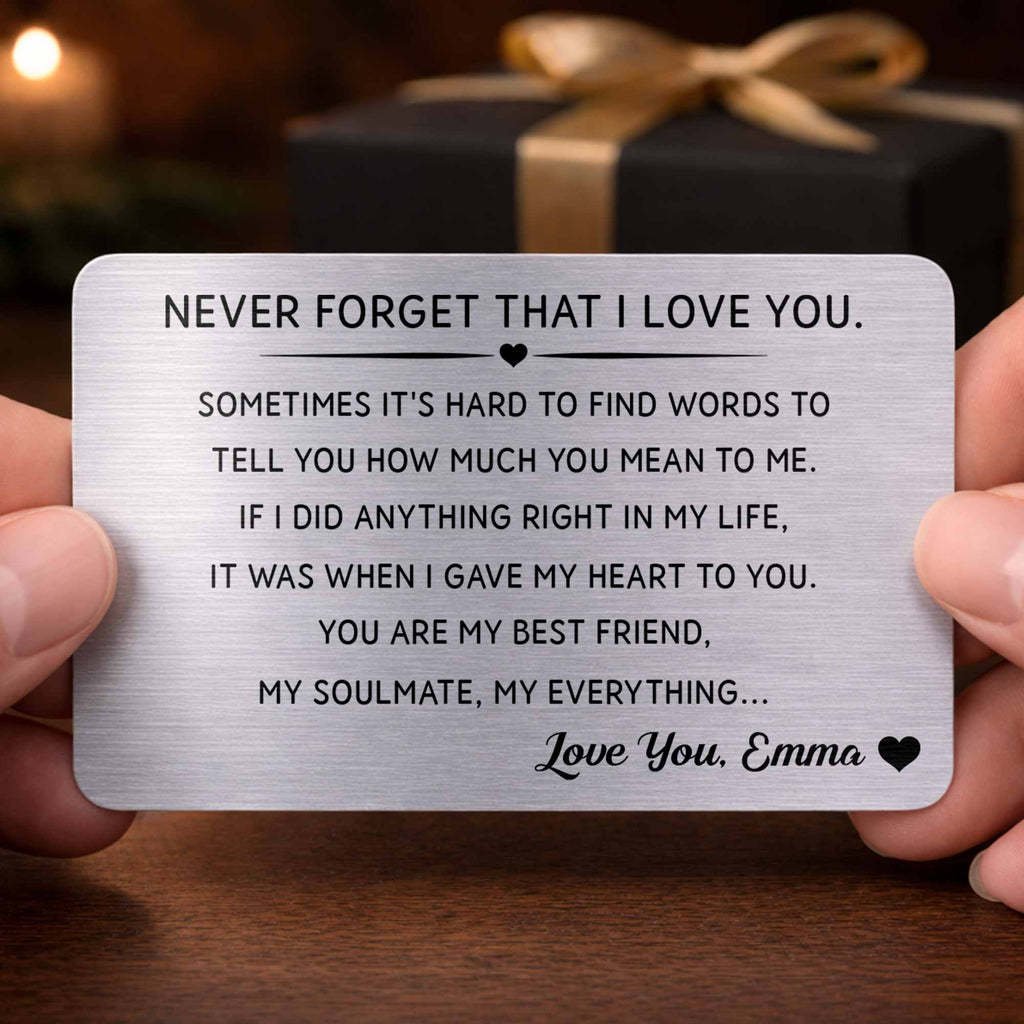 NEVER FORGET THAT I LOVE YOU.
SOMETIMES IT'S HARD TO FIND WORDS TO
TELL YOU HOW MUCH YOU MEAN TO ME.
IF I DID ANYTHING RIGHT IN MY LIFE,
IT WAS WHEN I GAVE MY HEART TO YOU.
YOU ARE MY BEST FRIEND,
MY SOULMATE, MY EVERYTHING...
Love You, Emma ♥